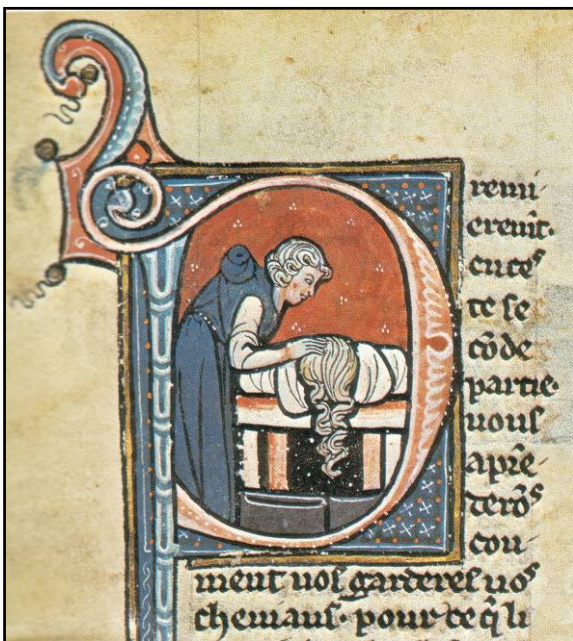 Premi-
erem̃t·
en ces
te se
cõde
partie·
uous
aprẽ-
derõs
cou-
ment uos garderes uos
cheuiaus· pour ce q̃ li